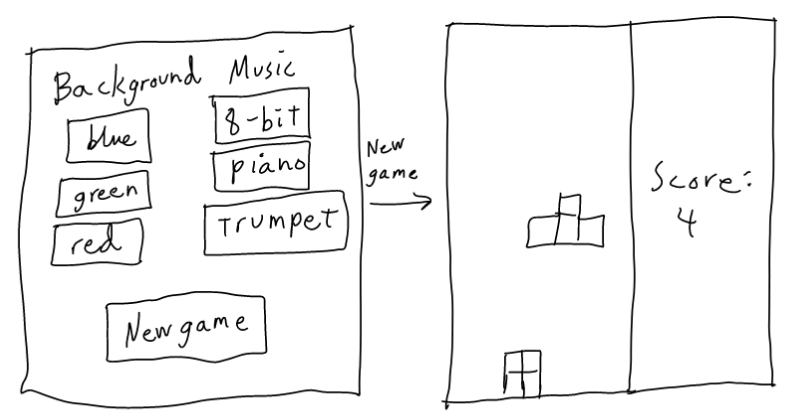 Background
blue
green
red
Music
8-bit
piano
Trumpet
New game
New
game
Score:
4